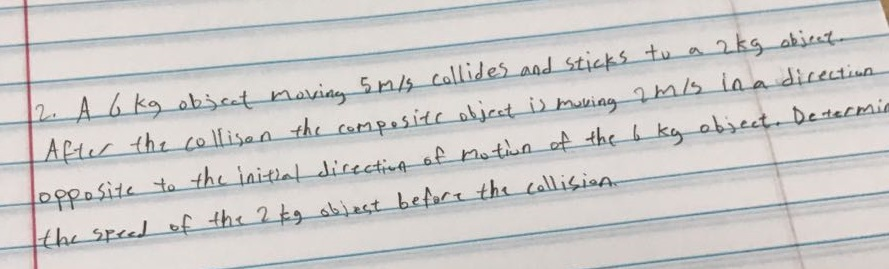 2. A 6 kg object moving 5 m/s collides and sticks to a 2kg object.
After the collison the composite object is moving 2 m/s in a direction
opposite to the initial direction of motion of the 6 kg object. Determi
the speed of the 2 kg object before the collision.